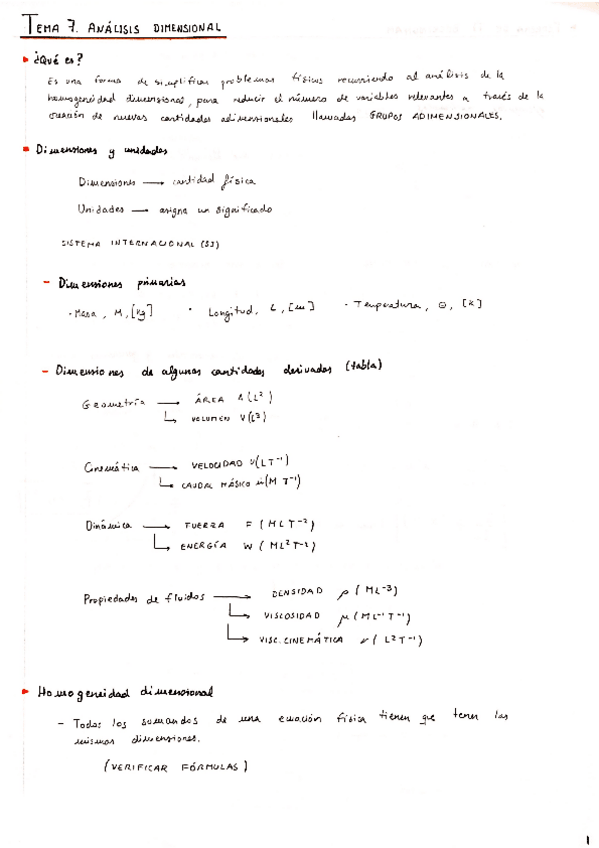 TEMA 7. ANÁLISIS DIMENSIONAL
¿Qué es?
Es una forma de simplificar problemas físicos recurriendo al análisis de la
homogeneidad dimensional, para reducir el número de variables relevantes a través de la
creación de nuevas cantidades adimensionales llamadas GRUPOS ADIMENSIONALES.
Dimensiones y unidades
Dimensiones → cantidad física
Unidades → asigna un significado
SISTEMA INTERNACIONAL (SI)
- Dimensiones primarias
· Masa, M, [kg] · Longitud, L, [m] · Temperatura, Θ, [K]
- Dimensiones de algunas cantidades derivadas (tabla)
Geometría → ÁREA A(L²)
↳ VOLUMEN V(L³)
Cinemática → VELOCIDAD V(LT⁻¹)
↳ CAUDAL MÁSICO ṁ(M T⁻¹)
Dinámica → FUERZA F (MLT⁻²)
↳ ENERGÍA W (ML²T⁻²)
Propiedades de fluidos → DENSIDAD ρ (ML⁻³)
↳ VISCOSIDAD μ (ML⁻¹T⁻¹)
↳ VISC. CINEMÁTICA ν (L²T⁻¹)
Homogeneidad dimensional
- Todos los sumandos de una ecuación física tienen que tener las
mismas dimensiones.
(VERIFICAR FÓRMULAS)
1